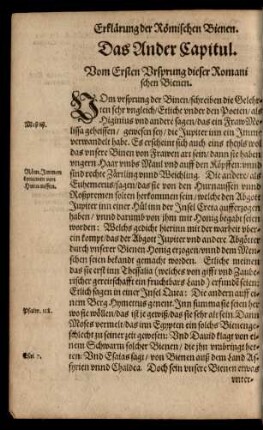 Erklärung der Römischen Bienen.
Das Ander Capitul.
Vom Ersten Vrsprung dieser Romani
schen Bienen.
VOm vrsprung der Binen/schreiben die Geleh=
ten sehr vngleich/Erliche vnder den Poeten/ als
Higinius vnd andere sagen/das ein Fraw Me=
lissa geheissen/ gewesen sey/ die Jupiter inn ein Imme
verwandelt habe. Es erscheint sich auch eins theyls wol
das vnsere Bienen von Frawen art sein/ dann sie haben
vngern Haar vmbs Maul vnd auff den Köpffen/vnnd
sind rechte Zärtling vnnd Weichling. Die andere/als
Euhemerus sagen/das sie von den Hurnaussen vnnd
Roßpremen solten herkommen sein/welche den Abgott
Jupiter inn einer Hülin der Insel Creta aufferzogen
haben/ vnnd darumb von ihm mir Honig begabt seien
worden: Welchs gedicht hiermit der warheit vber=
ein kompt/das der Abgot Jupiter vnd andere Abgötter
durch vnsere Bienen Honig erzogen/vnnd dem Men=
schen seien bekandt gemacht worden. Etliche meinen
das sie erst inn Thessalia (welches von gifft vnd Zaube=
rischer gereitschafft ein fruchtbars Land) erfunde seien:
Etlich sagen in einer Insel Zuea: Die andern auff ei=
nem Berg Hymettus gment. Inn summa sie seien her
wo sie wöllen/das ist je gewiß/das sie sehr alt sein. Dann
Moses vermelt/das inn Egypten ein solchs Bienenge=
schlecht zu seiner zeit gewesen: Vnd Dauid klagt von ei=
nem Schwarm solcher Bienen/ die jhn vmbringt het=
ten: Vnd Esaias sagt/ von Bienen auß dem Land As=
syrien vnnd Chaldea. Doch sein vnsere Bienen etwas
vnter=
Melissa.
Röm. Immen
kommen von
Hurnaussen.
Psalm. 118.
Esai. 7.